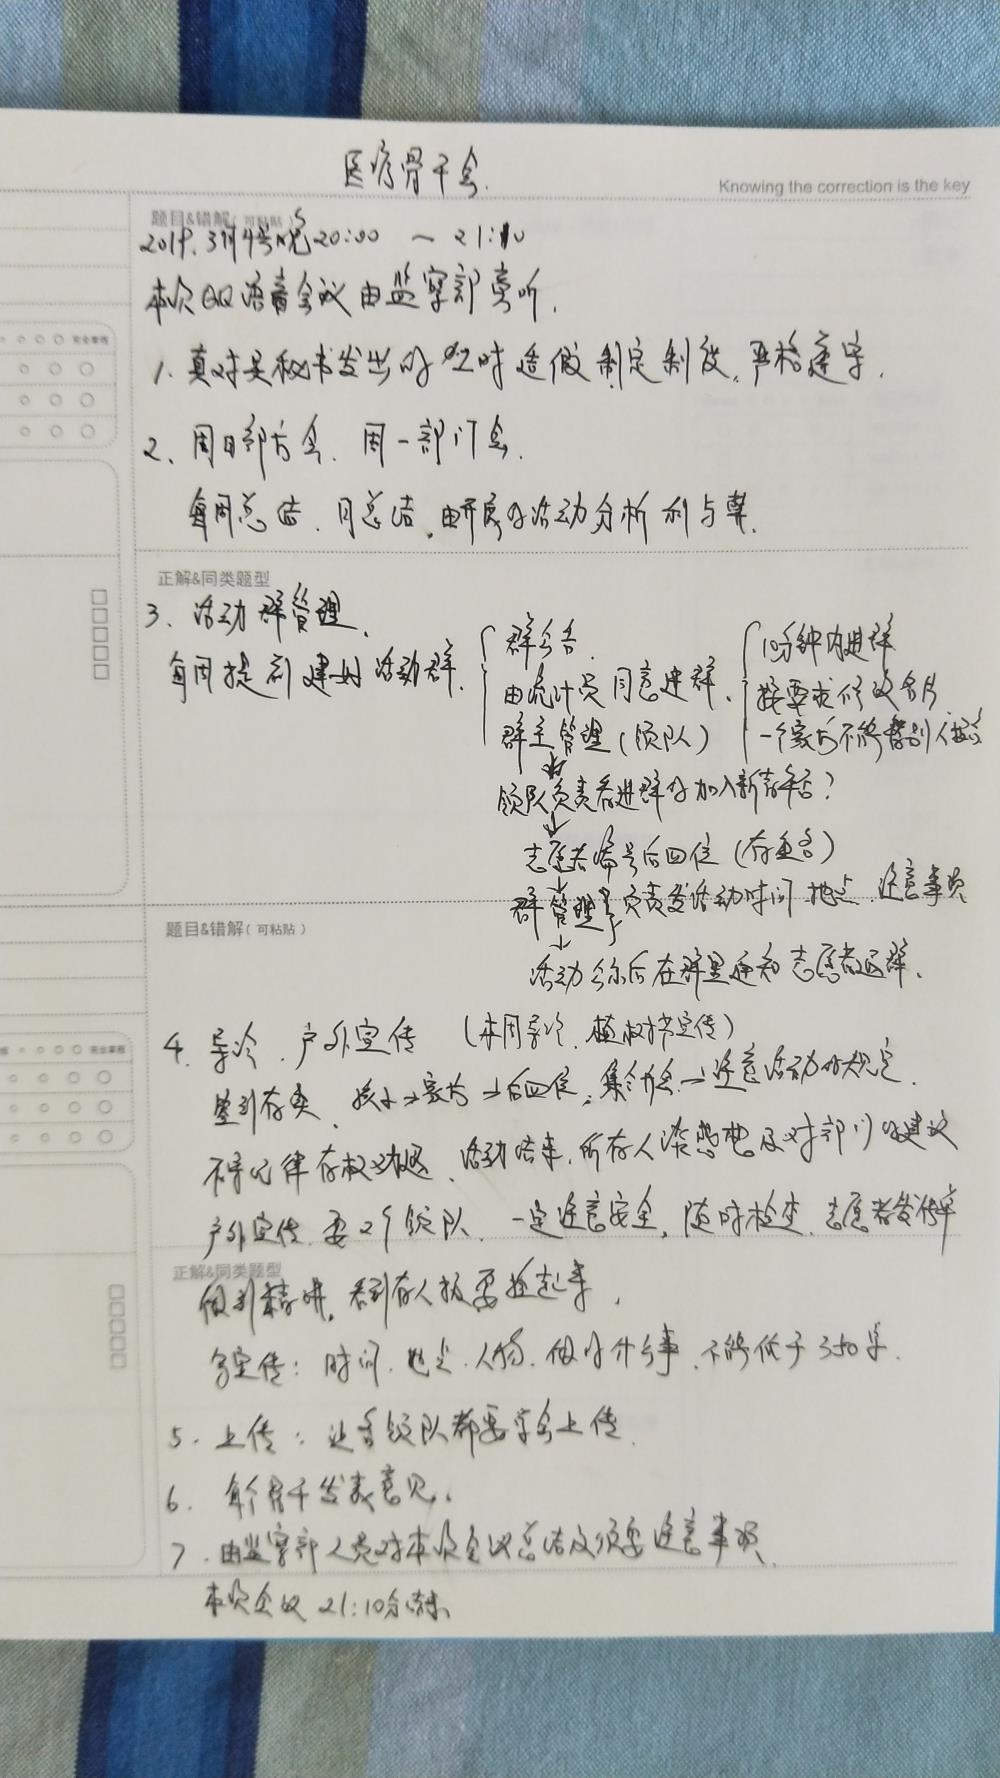 医疗骨干会.
Knowing the correction is the key
题目&错解(可粘贴)
2019.3月4号晚20:00 — 21:10
本次QQ语音会议由监察部旁听.
1. 真对吴秘书发出的 制定制度,严格遵守.
2、周日部长会、周一部门会.
每周总结、月总结,由开展的活动分析利与弊.
正解&同类题型
3、活动群管理、
每周提前建好活动群.
群公告.
由统计员同意建群、
群主管理(领队)
10分钟内进群
按要求修改名片
一个家长不能帮别人报名
领队负责看进群的加入新群否?
志愿者编号后四位(有重名)
群管理 负责发活动时间 地点 注意事项
题目&错解(可粘贴)
活动公示后在群里通知志愿者退群.
完全掌握
4. 导诊、户外宣传 (本周导诊、植树节宣传)
签到存类、孩子→家长→后四位,集合开会→注意活动的规定.
不守纪律有权劝退、活动结束,所有人谈感想及对部门的建议
户外宣传 要2个领队、一定注意安全,随时检查、志愿者发传单
正解&同类题型
做到精讲,看到有人扔要捡起来,
写宣传:时间、地点、人物、做的什么事、不能低于350字.
5. 上传:让各领队都要学会上传.
6. 每个骨干发表意见.
7. 由监察部人员对本次会议总结及须要注意事项.
本次会议21:10分结束